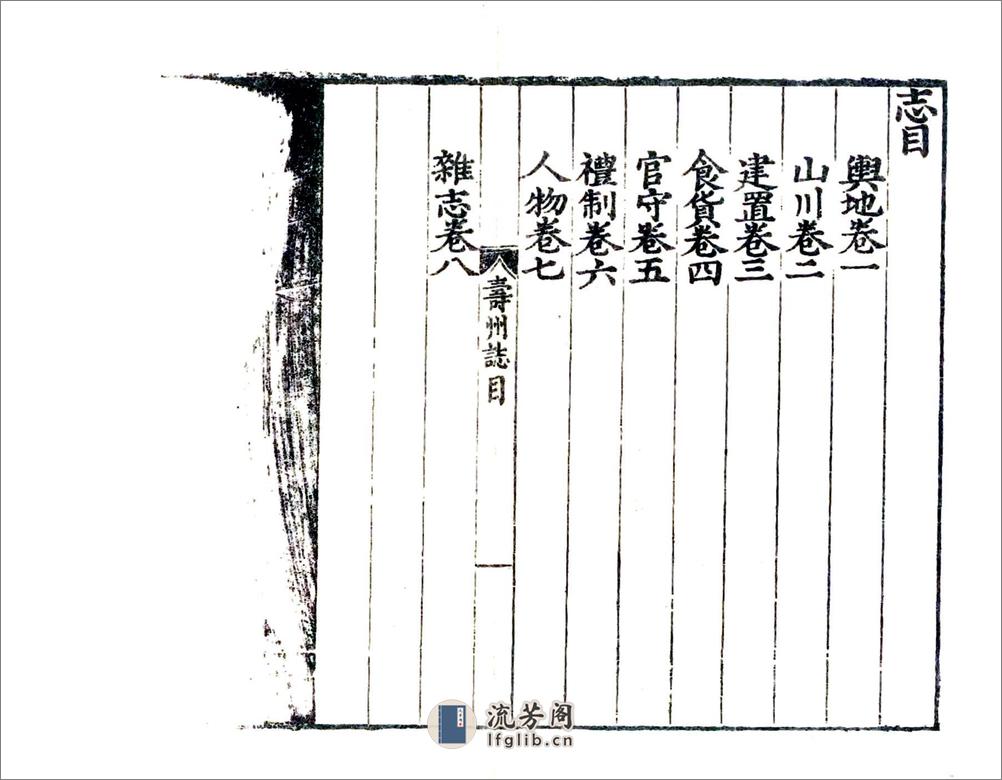 志目
輿地卷一
山川卷二
建置卷三
食貨卷四
官守卷五
禮制卷六
人物卷七
壽州誌目
雜志卷八
流芳阁
lfglib.cn